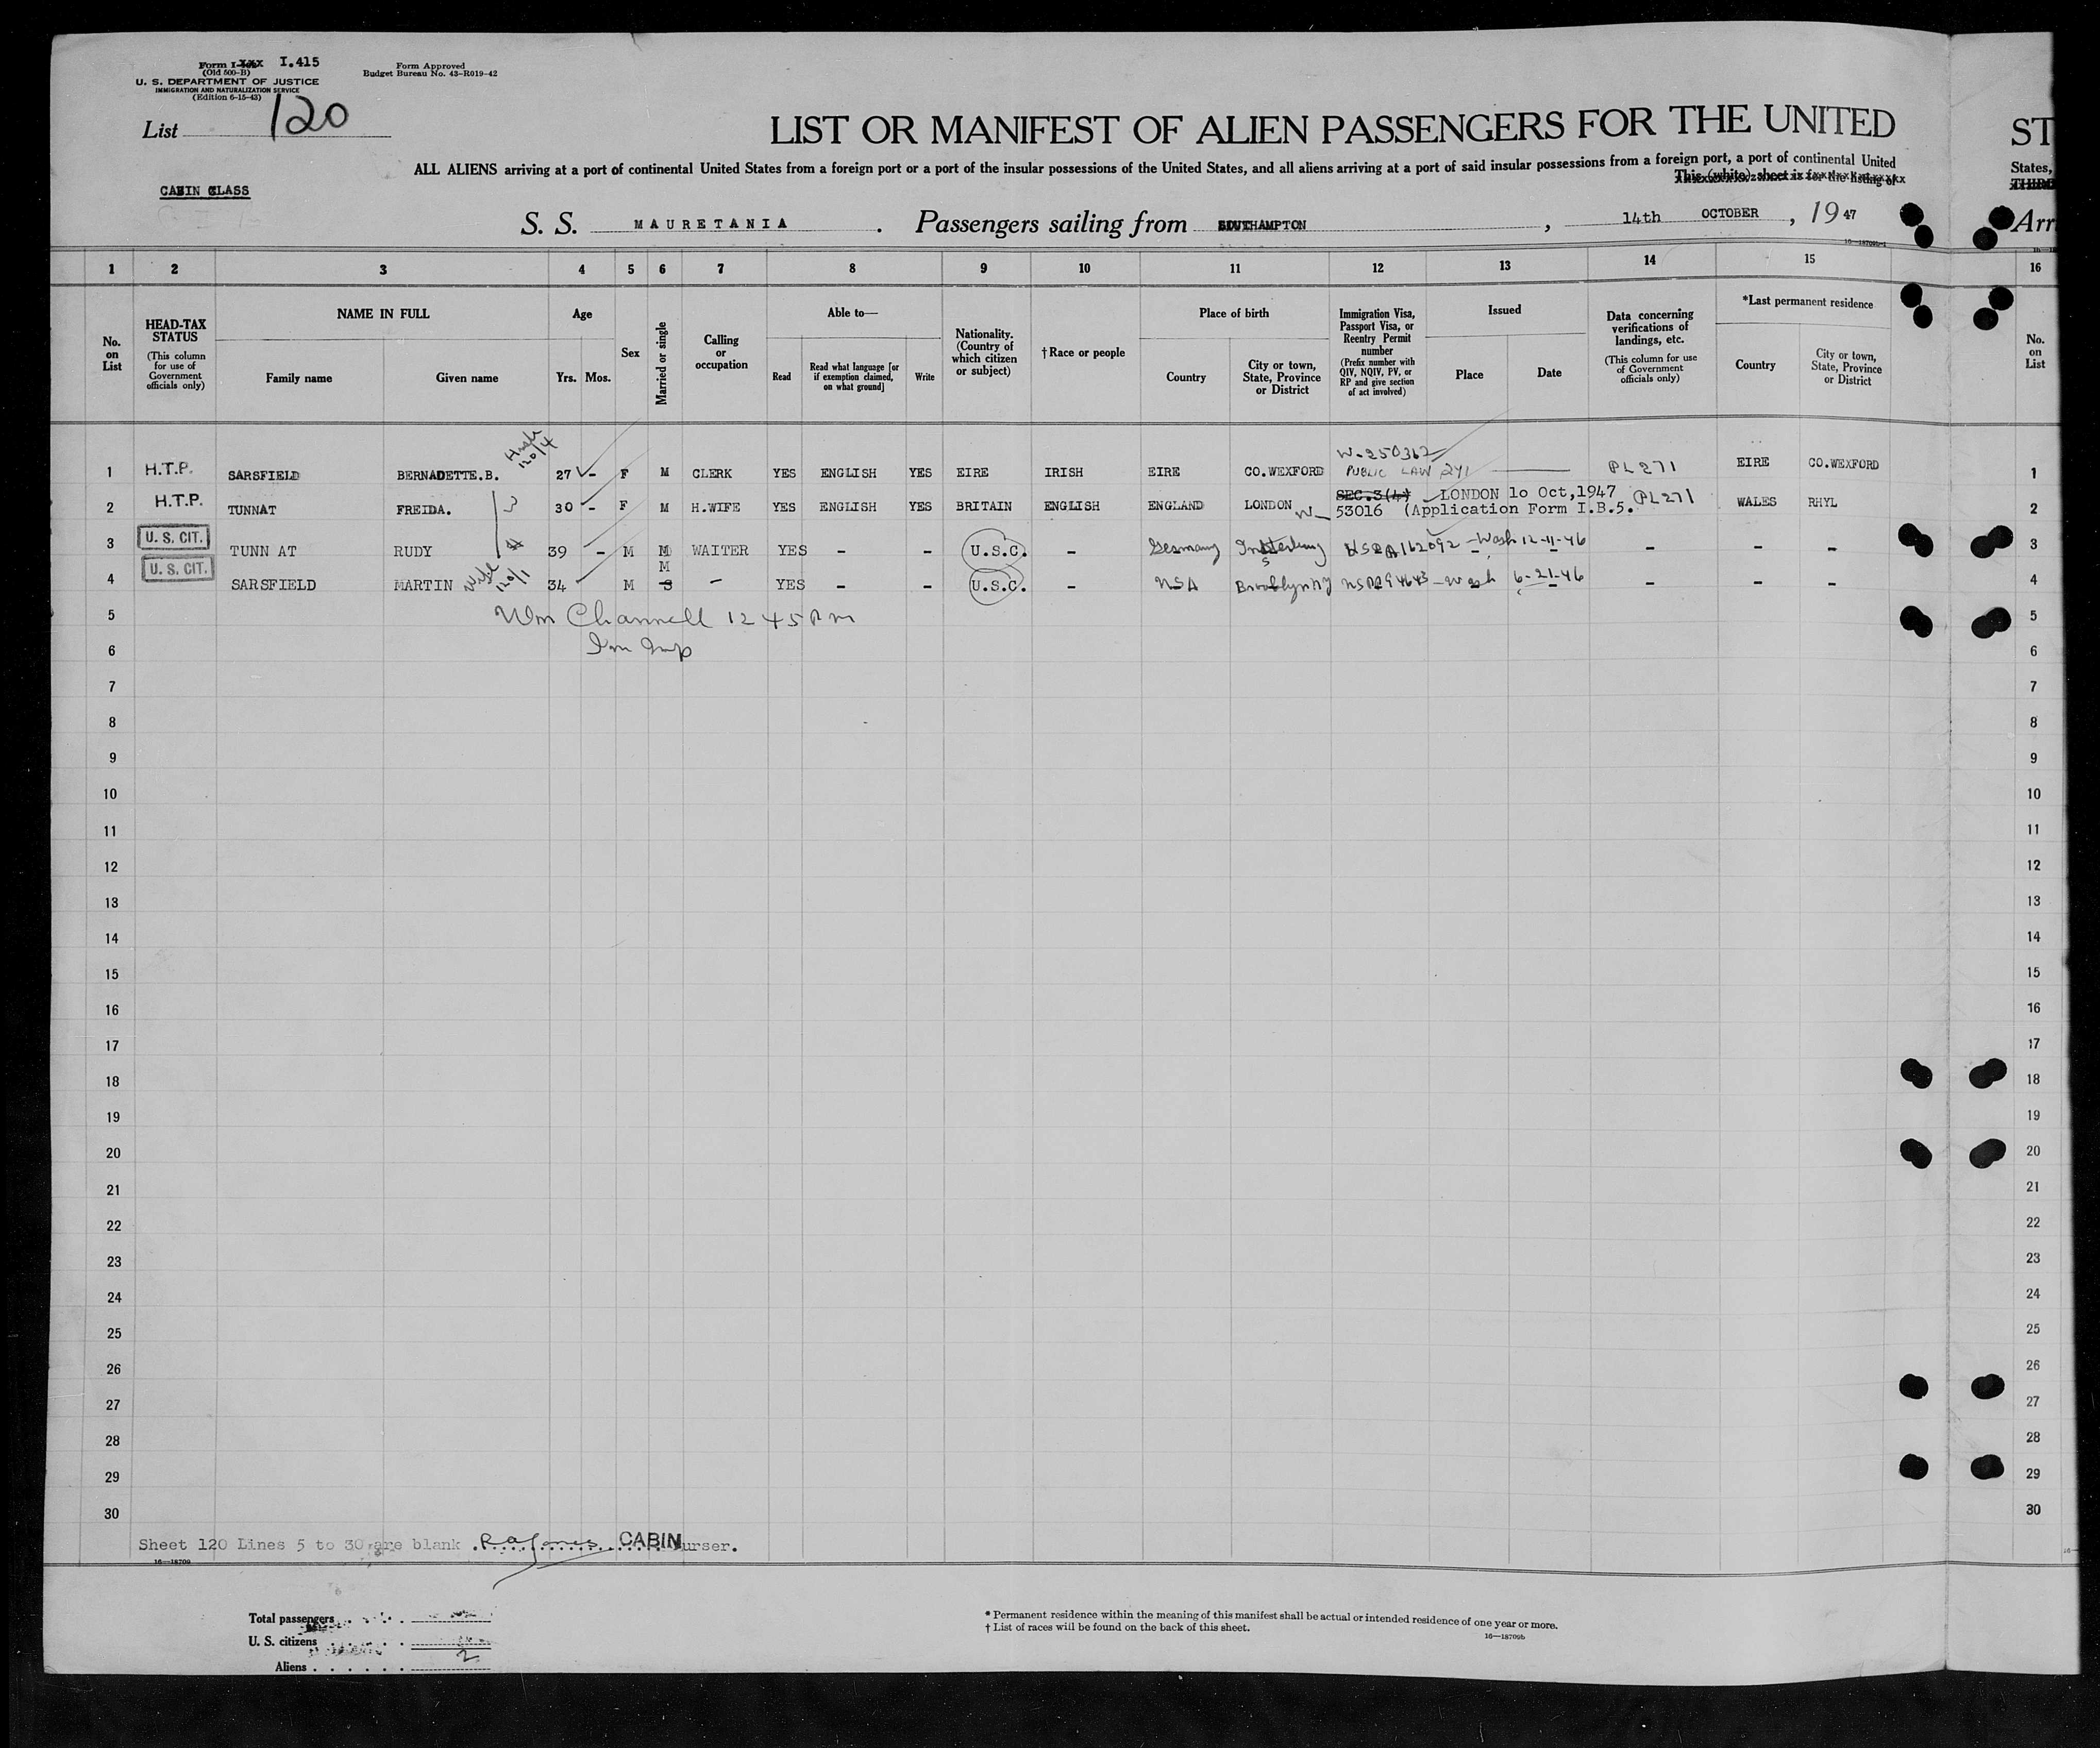 Form I-xxx I.415
(Old 500-B)
U. S. DEPARTMENT OF JUSTICE
IMMIGRATION AND NATURALIZATION SERVICE
(Edition 6-15-43)
Form Approved
Budget Bureau No. 43-R019-42
List 120
LIST OR MANIFEST OF ALIEN PASSENGERS FOR THE UNITED
ST
ALL ALIENS arriving at a port of continental United States from a foreign port or a port of the insular possessions of the United States, and all aliens arriving at a port of said insular possessions from a foreign port, a port of continental United
States,
This (white) sheet is for the listing of
CABIN CLASS
S. S. MAURETANIA. Passengers sailing from SOUTHAMPTON, 14th OCTOBER, 1947
Arr
16—18709b-1
1 2 3 4 5 6 7 8 9 10 11 12 13 14 15 16
No. on List
HEAD-TAX STATUS
(This column for use of Government officials only)
NAME IN FULL
Family name Given name
Age
Yrs. Mos.
Sex
Married or single
Calling or occupation
Able to—
Read
Read what language [or if exemption claimed, on what ground]
Write
Nationality. (Country of which citizen or subject)
†Race or people
Place of birth
Country
City or town, State, Province or District
Immigration Visa, Passport Visa, or Reentry Permit number
(Prefix number with QIV, NQIV, PV, or RP and give section of act involved)
Issued
Place Date
Data concerning verifications of landings, etc.
(This column for use of Government officials only)
*Last permanent residence
Country
City or town, State, Province or District
No. on List
Husb 120/4
W-250362
1 H.T.P. SARSFIELD BERNADETTE.B. 27 - F M CLERK YES ENGLISH YES EIRE IRISH EIRE CO.WEXFORD PUBLIC LAW 271 PL 271 EIRE CO.WEXFORD 1
SEC.3(4) LONDON 1o Oct,1947
2 H.T.P. TUNNAT FREIDA. 3 30 - F M H.WIFE YES ENGLISH YES BRITAIN ENGLISH ENGLAND LONDON W- 53016 (Application Form I.B.5. PL271 WALES RHYL 2
3 U. S. CIT. TUNN AT RUDY 39 - M M WAITER YES - - U.S.C. - Germany Insterburg USPP 162092 - Wash 12-11-46 - - - 3
M
4 U. S. CIT. SARSFIELD MARTIN Wife 120/1 34 M S - YES - - U.S.C. - USA Brooklyn NY USPP 94643 - Wash 6-21-46 - - - 4
5 Wm Channell 12 45 PM 5
6 Imm Insp 6
7 7
8 8
9 9
10 10
11 11
12 12
13 13
14 14
15 15
16 16
17 17
18 18
19 19
20 20
21 21
22 22
23 23
24 24
25 25
26 26
27 27
28 28
29 29
30 30
Sheet 120 Lines 5 to 30 are blank CABIN urser.
16—18709
Total passengers
U. S. citizens
Aliens 2
* Permanent residence within the meaning of this manifest shall be actual or intended residence of one year or more.
† List of races will be found on the back of this sheet.
16—18709b